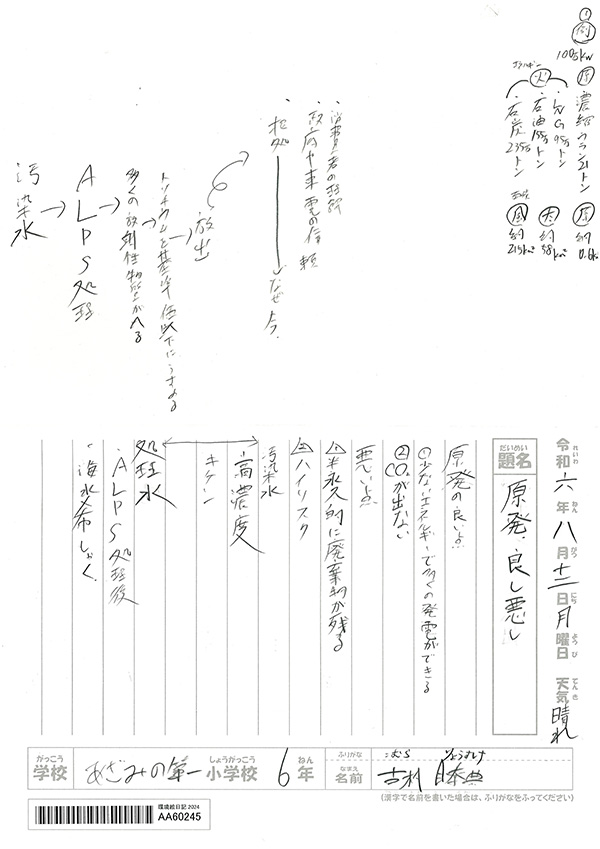 ①
例
100万kw
原 濃縮ウラン21トン
火
・LNG95万トン
・石油155万トン
・石炭235万トン
原 約0.6km²
太 約58km²
風 約215km²
・消費者の理解
・政府や東電の信頼
・拒処→なぜ今、
放出
トリチウムを基準値以下にうすめる
多くの放射性物質がへる
ALPS処理
汚染水
令和六年八月十二日月曜日 天気晴れ
題名 原発、良し悪し
原発の良い点
①少ないエネルギーで多くの発電ができる
②CO₂が出ない
悪い点
①半永久的に廃棄物が残る
②ハイリスク
汚染水
・高濃度
キケン
処理水
・ALPS処理後
・海水希しゃく
学校 あざみの第一小学校 6年
ふりがな
名前
(漢字で名前を書いた場合は、ふりがなをふってください)
環境絵日記2024
AA60245